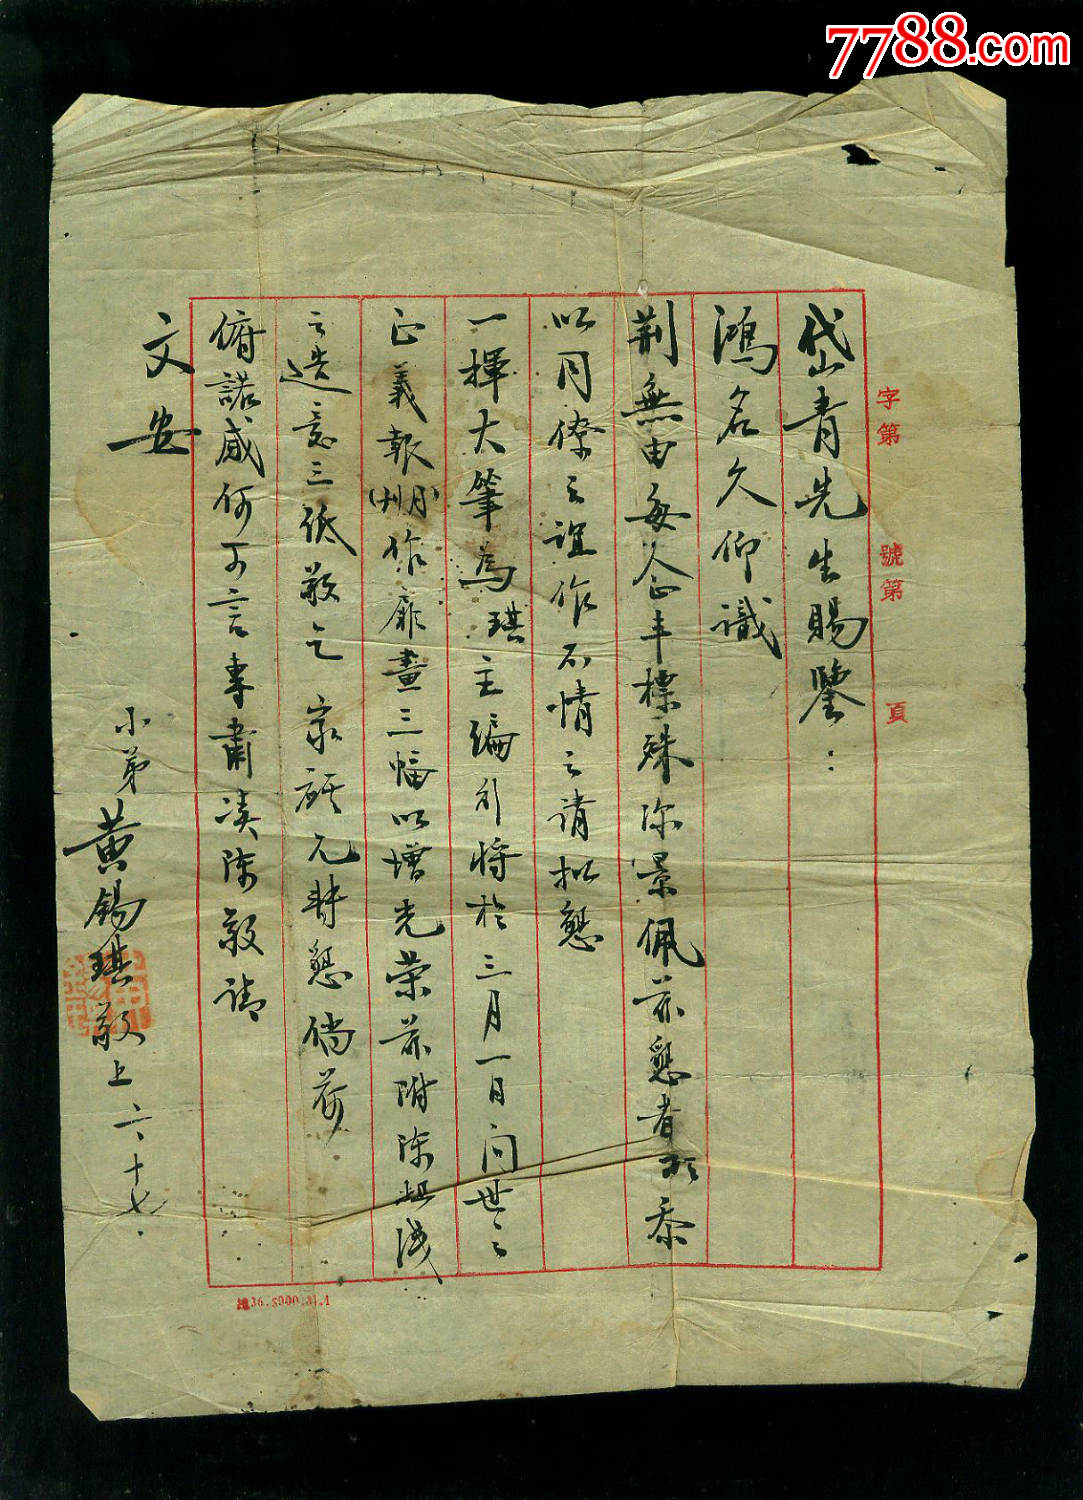 7788.com
字第 號第 頁
岱青先生賜鑒：
鴻名久仰識
荊無由每念丰標殊深景佩茲懇者忝
以同僚之誼作不情之請擬懇
一揮大筆為琪主編行將於三月一日問世之
正義報(月刊)作扉畫三幅以增光榮茲附陳粗淺
之造意三紙敬乞 察核尤 懇倘荷
俯諾感何可言專肅 陳敬請
文安
小弟黃錫琪敬上 二、十七、
36.5000.31.1